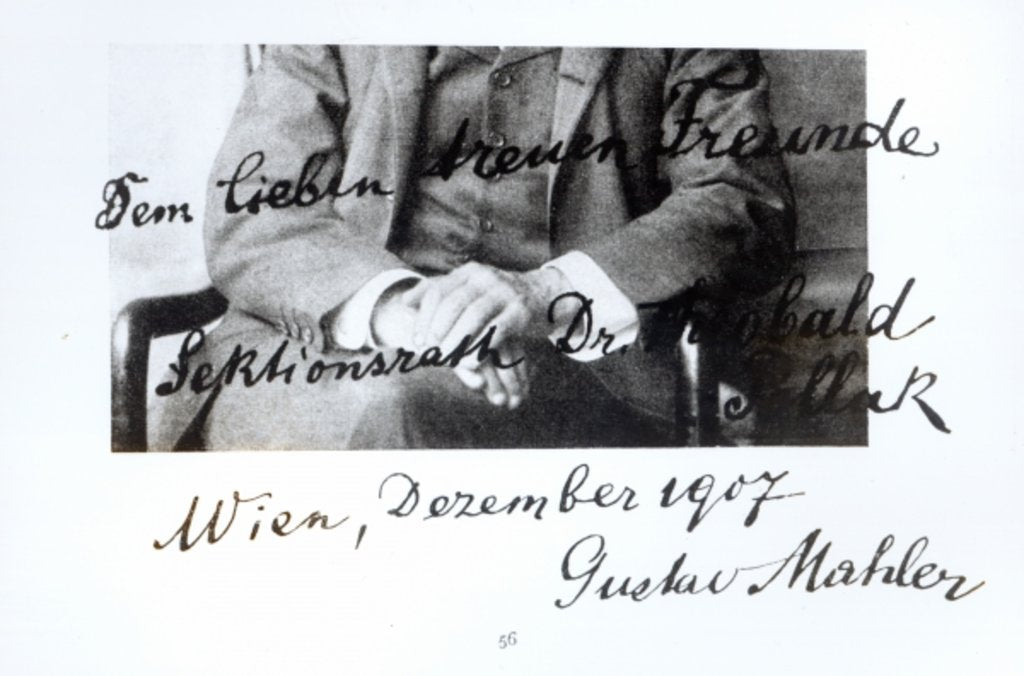 Dem lieben treuen Freunde
Sektionsrath Dr. Theobald
Pollak
Wien, Dezember 1907
Gustav Mahler
56